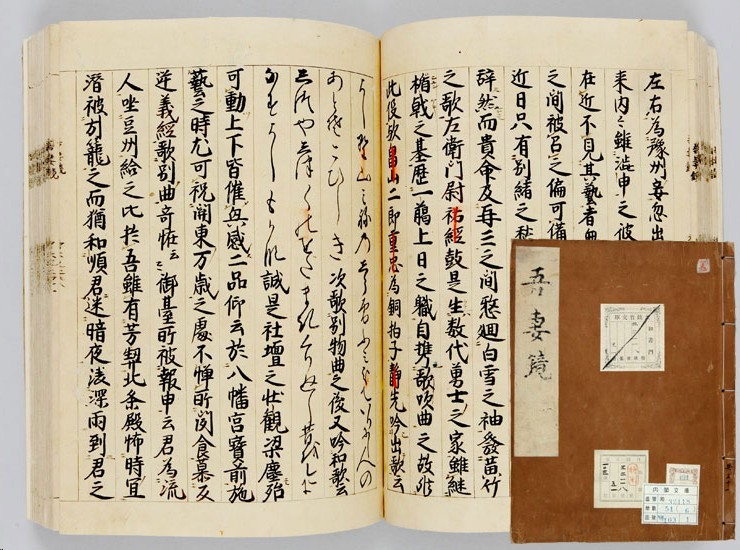 左右為豫州妾忽出
来内々雖澁申之彼
在近不見其藝者無
之間被召之偏可備
近日只有別緒之愁
辞然而貴命及再三之間憖廻白雪之袖發黄竹
之歌左衛門尉祐經鼓是生数代勇士之家雖継
楯戟之基歴一﨟上日之職自携歌吹曲之故也従
此役歟畠山二郎重忠為銅拍子静先吟出歌云
よし野山みねのしら雪ふみわけて入にし人の
あとそこひしき 次歌別物曲之後又吟和歌云
しつやしつしつのをたまきくり返しむかしを
今になすよしもかな 誠是社壇之壮観梁塵殆
可動上下皆催興感二品仰云於八幡宮寳前施
藝之時尤可祝関東万歳之處不憚所聞食慕反
逆義經歌別曲奇恠云々御臺所被報申云君為流
人坐豆州給之比於吾雖有芳契北条殿怖時宜
潜被引籠之而猶和順君迷暗夜凌深雨到君之
吾妻鏡
内閣文庫